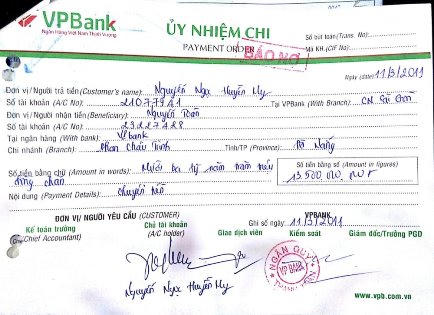 VPBank
Ngân Hàng Việt Nam Thịnh Vượng
ỦY NHIỆM CHI
PAYMENT ORDER
BÁO NỢ
Số bút toán (Trans. No):
Mã KH. (CIF No):
Ngày (date) 11/3/2011
Đơn vị/ Người trả tiền (Customer's name): Nguyễn Ngọc Huyền My
Số tài khoản (A/C No): 21077941 Tại VPBank (With Branch): CN Sài Gòn
Đơn vị/ Người nhận tiền (Beneficiary): Nguyễn Toàn
Số tài khoản (A/C No): 23227428
Tại ngân hàng (With bank): VPbank
Chi nhánh (Branch): Phan Châu Trinh Tỉnh/TP (Province): Đà Nẵng
Số tiền bằng chữ (Amount in words): Mười ba tỷ năm trăm triệu
đồng chẵn
Số tiền bằng số (Amount in figures)
13.500.000.000 đ
Nội dung (Payment Details): chuyển tiền
ĐƠN VỊ/ NGƯỜI YÊU CẦU (CUSTOMER)
VPBANK
Ghi sổ ngày 11/3/2011
Kế toán trưởng Chủ tài khoản Giao dịch viên Kiểm soát Giám đốc/Trưởng PGD
Chief Accountant) (A/C holder)
NGÂN QUỸ
VP BANK
Nguyễn Ngọc Huyền My
www.vpb.com.vn